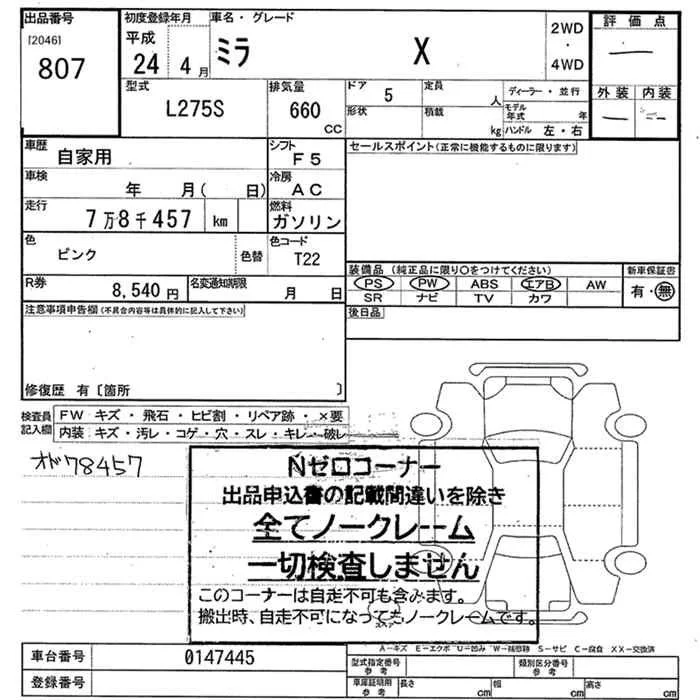 出品番号 初度登録年月 車名・グレード 評価点
[2046] 平成 2WD
807 24 4月 ミラ X ・ 4WD —
型式 排気量 ドア 5 定員 人 ディーラー・並行 外装 内装
L275S 660 CC 形状 積載 kg モデル年式 年 — --
ハンドル 左・右
車歴 自家用 シフト F5 セールスポイント(正常に機能するものに限ります)
車検 年 月( 日) 冷房 AC
走行 7万8千457 km 燃料 ガソリン
色 ピンク 色替 色コード T22
装備品 (純正品に限り○をつけてください) 新車保証書
R券 8,540円 名変通知期限 月 日 PS PW ABS エアB AW 有・無
SR ナビ TV カワ
注意事項申告欄(不具合内容等は具体的に記入して下さい) 後日品
修復歴 有〔箇所 〕
検査員記入欄 FW キズ・飛石・ヒビ割・リペア跡・×要
内装 キズ・汚レ・コゲ・穴・スレ・キレ・破レ
オド78457
Nゼロコーナー
出品申込書の記載間違いを除き
全てノークレーム
一切検査しません
このコーナーは自走不可も含みます。
搬出時、自走不可になってもノークレームです。
A-キズ E-エクボ U-凹み W-補修跡 S-サビ C-腐食 XX-交換済
車台番号 0147445 型式指定番号 参考 類別区分番号 参考
登録番号 車庫証明用 参考 長さ cm 幅 cm 高さ cm